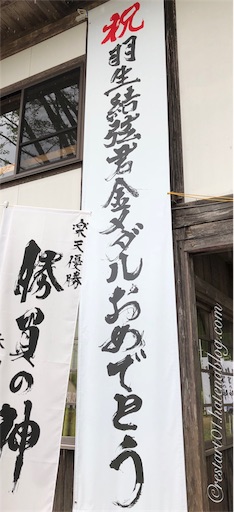 祝羽生結弦君金メダルおめでとう
楽天優勝
勝負の神
©restart01.hatenablog.com